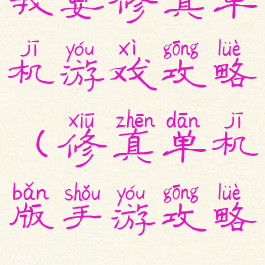 我要修真单
jī yóu xì gōng lüè
机游戏攻略
xiū zhēn dān jī
（修真单机
bǎn shǒu yóu gōng lüè
版手游攻略